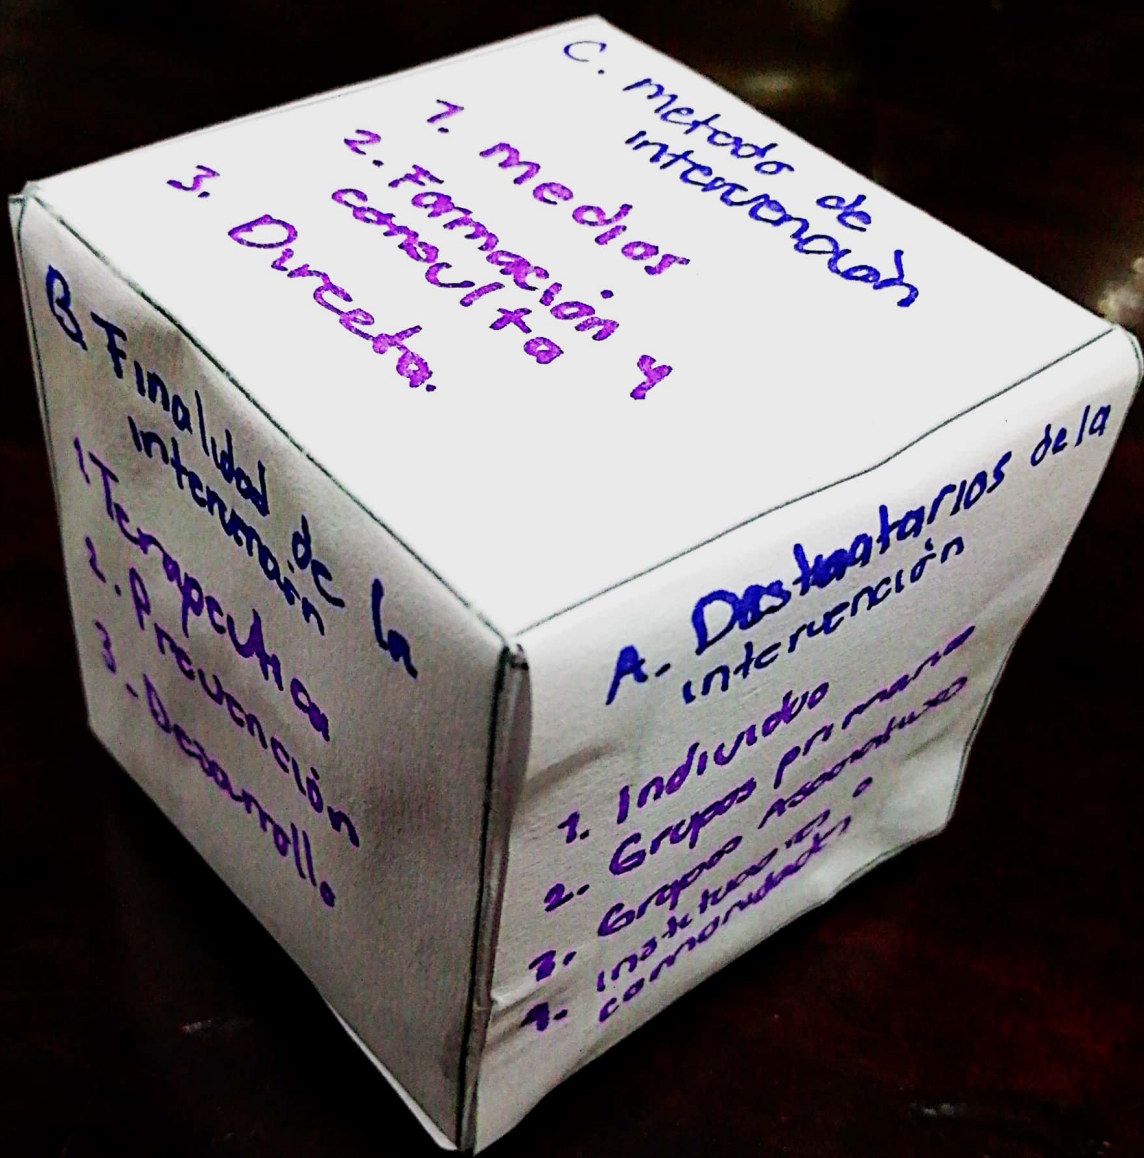 C. metodo de
intervención
1. medios
2. Formación y
consulta
3. Directa.
B. Finalidad de la
intervención
1 Terapeutica
2. Prevención
3. Desarrollo
A. Destinatarios de la
intervención
1. Individuo
2. Grupos primarios
3. Grupos Asociativos
4. instituciones o
comunidades